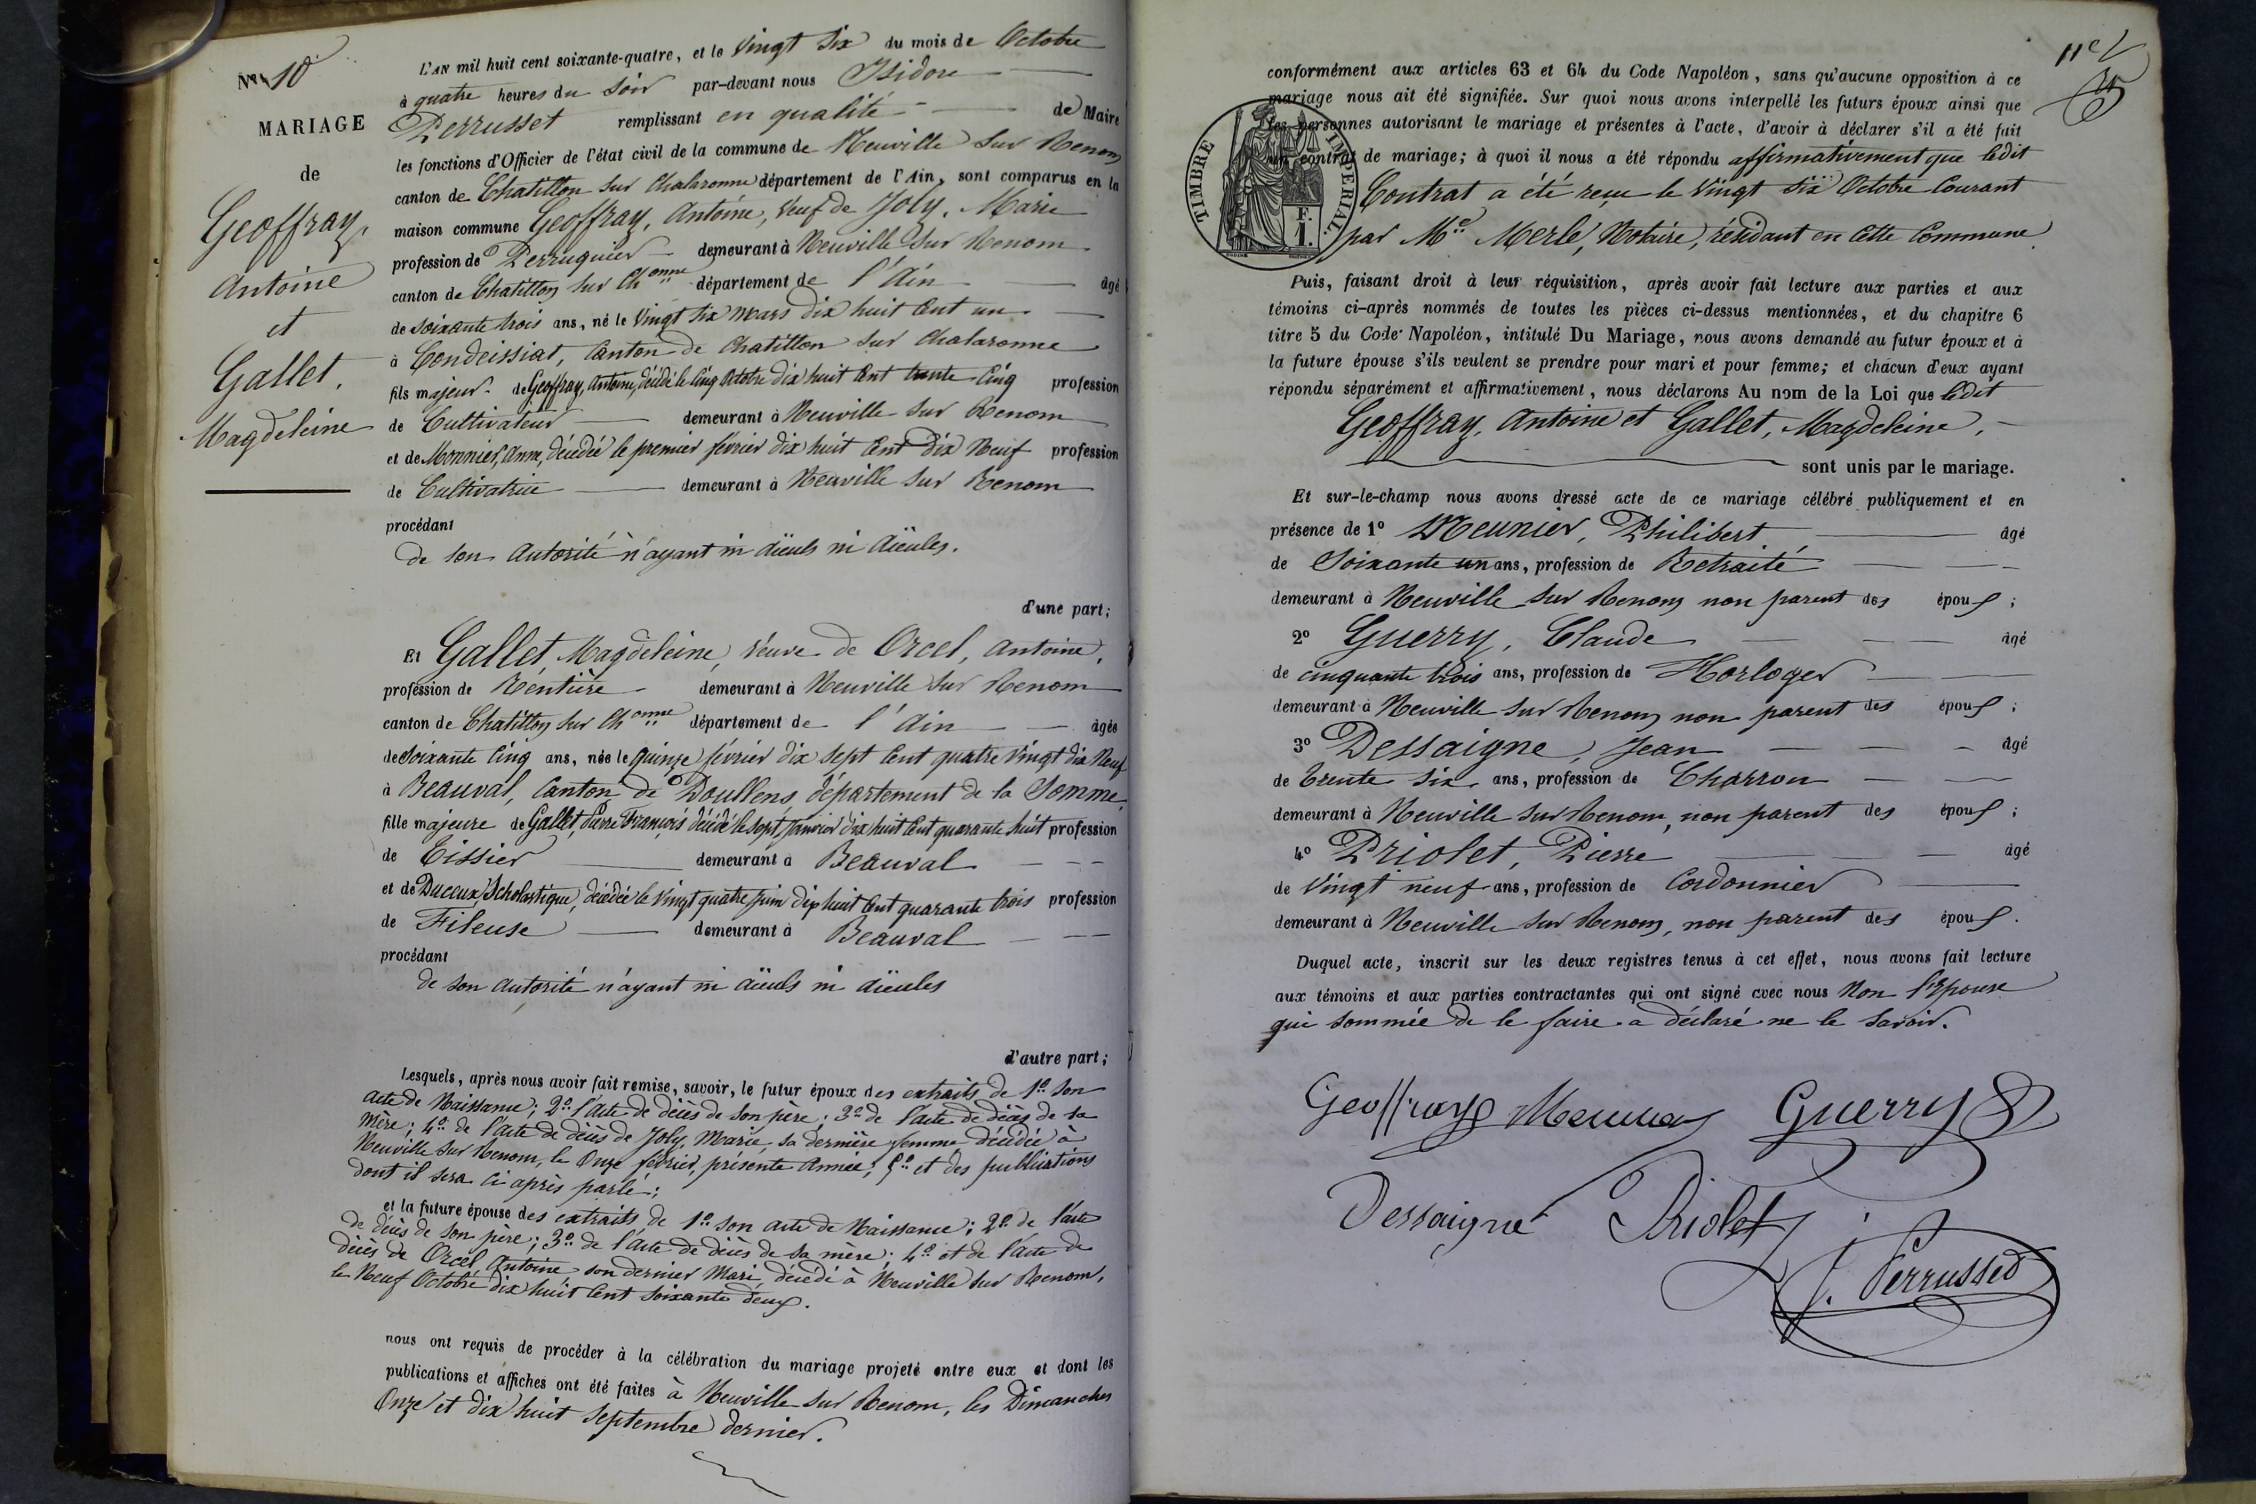 Nº 10
MARIAGE
de
Geoffray,
Antoine
et
Gallet,
Magdeleine
L'AN mil huit cent soixante-quatre, et le Vingt Six du mois de Octobre
à quatre heures du Soir par-devant nous Isidore
Perrusset remplissant en qualité de Maire
les fonctions d'Officier de l'état civil de la commune de Neuville sur Renom
canton de Chatillon sur Chalaronne département de l'Ain, sont comparus en la
maison commune Geoffray, Antoine, Veuf de Joly, Marie
profession de Perruquier demeurant à Neuville sur Renom
canton de Chatillon sur Chonne département de l'Ain âgé
de soixante trois ans, né le Vingt Six Mars dix huit Cent un
à Condeissiat, Canton de Chatillon sur Chalaronne
fils majeur de Geoffray, Antoine, décédé le Cinq Octobre dix huit Cent trente Cinq profession
de Cultivateur demeurant à Neuville sur Renom
et de Monnier, Anne, décédée le premier février dix huit Cent Dix Neuf profession
de Cultivatrice demeurant à Neuville sur Renom
procédant
de son Autorité n'ayant ni aïeuls ni aïeules.
d'une part;
Et Gallet, Magdeleine, Veuve de Orcel, Antoine,
profession de Rentière demeurant à Neuville sur Renom
canton de Chatillon sur Chonne département de l'Ain âgée
de Soixante Cinq ans, née le quinze février dix sept Cent quatre Vingt dix Neuf
à Beauval, Canton de Doullens, département de la Somme,
fille majeure de Gallet, Pierre François décédé le sept Janvier dix huit Cent quarante huit profession
de Tissier demeurant à Beauval
et de Duceux, Scholastique, décédée le Vingt quatre Juin dix huit Cent quarante trois profession
de Fileuse demeurant à Beauval
procédant
de son autorité n'ayant ni aïeuls ni aïeules
d'autre part;
Lesquels, après nous avoir fait remise, savoir, le futur époux des extraits de 1º son
acte de Naissance; 2º l'acte de décès de son père; 3º de l'acte de décès de sa
mère; 4º de l'acte de décès de Joly, Marie, sa dernière femme décédée à
Neuville sur Renom, le Onze février, présente Année; 5º et des publications
dont il sera ci après parlé;
et la future épouse des extraits de 1º son acte de Naissance; 2º de l'acte
de décès de son père; 3º de l'acte de décès de sa mère; 4º et de l'acte de
décès de Orcel, Antoine son dernier Mari, décédé à Neuville sur Renom,
le Neuf Octobre dix huit Cent soixante deux.
nous ont requis de procéder à la célébration du mariage projeté entre eux et dont les
publications et affiches ont été faites à Neuville sur Renom, les Dimanches
Onze et dix huit Septembre dernier.
11e
conformément aux articles 63 et 64 du Code Napoléon, sans qu'aucune opposition à ce
mariage nous ait été signifiée. Sur quoi nous avons interpellé les futurs époux ainsi que
les personnes autorisant le mariage et présentes à l'acte, d'avoir à déclarer s'il a été fait
un contrat de mariage; à quoi il nous a été répondu affirmativement que ledit
Contrat a été reçu le Vingt six Octobre Courant
par Me Merle, Notaire, résidant en cette Commune
TIMBRE IMPERIAL.
F.
1.
Puis, faisant droit à leur réquisition, après avoir fait lecture aux parties et aux
témoins ci-après nommés de toutes les pièces ci-dessus mentionnées, et du chapitre 6
titre 5 du Code Napoléon, intitulé Du Mariage, nous avons demandé au futur époux et à
la future épouse s'ils veulent se prendre pour mari et pour femme; et chacun d'eux ayant
répondu séparément et affirmativement, nous déclarons Au nom de la Loi que ledit
Geoffray, Antoine et Gallet, Magdeleine,
sont unis par le mariage.
Et sur-le-champ nous avons dressé acte de ce mariage célébré publiquement et en
présence de 1º Meunier, Philibert âgé
de Soixante un ans, profession de Retraité
demeurant à Neuville sur Renom non parent des époux;
2º Guerry, Claude âgé
de cinquante trois ans, profession de Horloger
demeurant à Neuville sur Renom non parent des époux;
3º Dessaigne, Jean âgé
de trente six ans, profession de Charron
demeurant à Neuville sur Renom, non parent des époux;
4º Priolet, Pierre âgé
de Vingt neuf ans, profession de Cordonnier
demeurant à Neuville sur Renom, non parent des époux.
Duquel acte, inscrit sur les deux registres tenus à cet effet, nous avons fait lecture
aux témoins et aux parties contractantes qui ont signé avec nous Non l'Epouse
qui sommée de le faire a déclaré ne le savoir.
Geoffray Meunier Guerry
Dessaigne Priolet
J. Perrusset